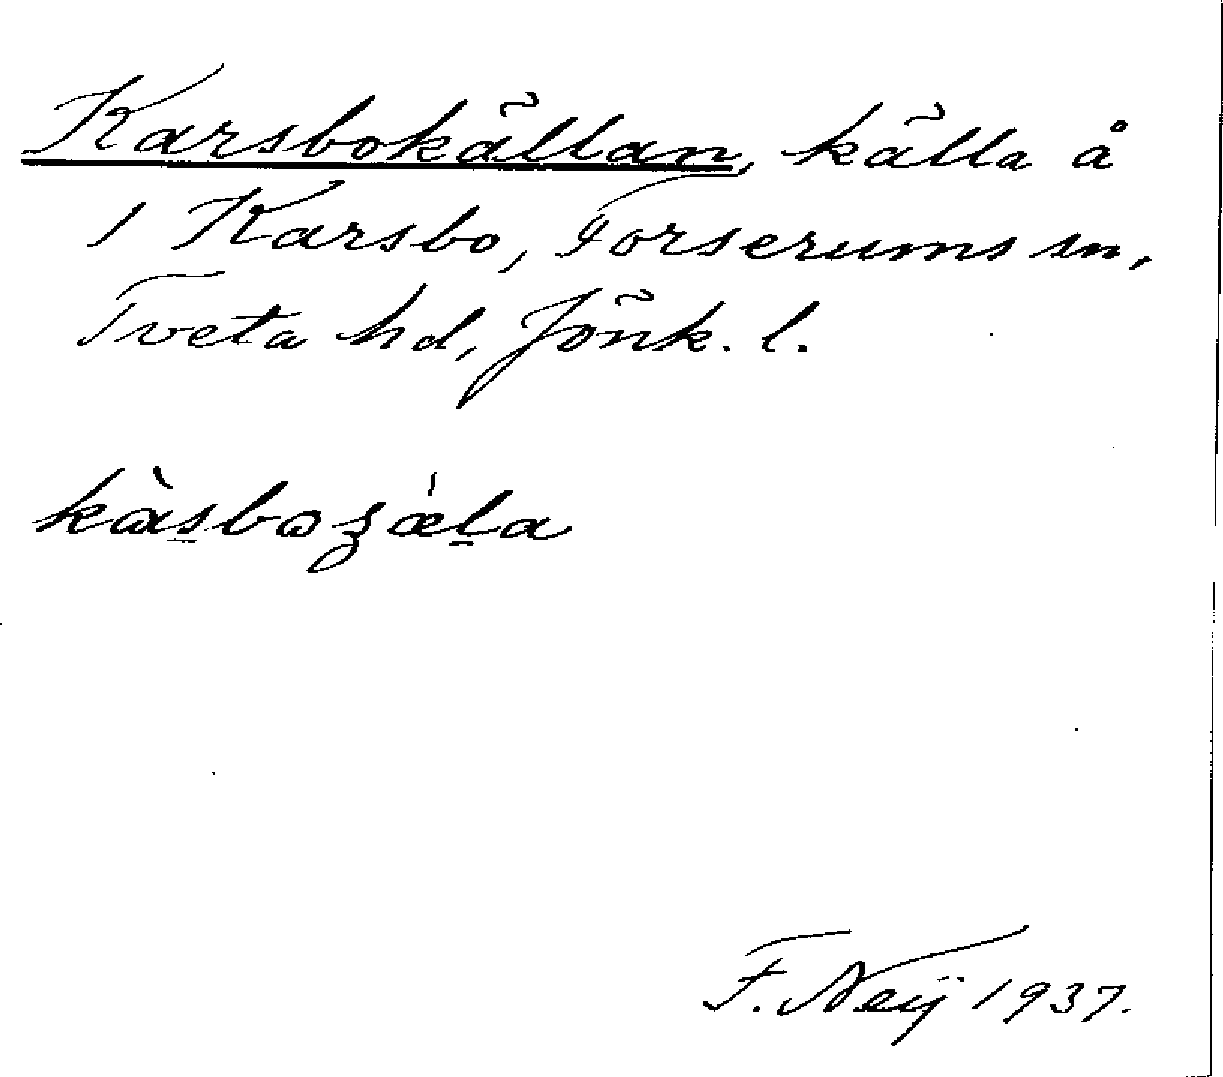 Karsbokällan, källa å
1 Karsbo, Forserums sn,
Tveta hd, Jönk. l.
kàsboʒǽla
F. Neij 1937.